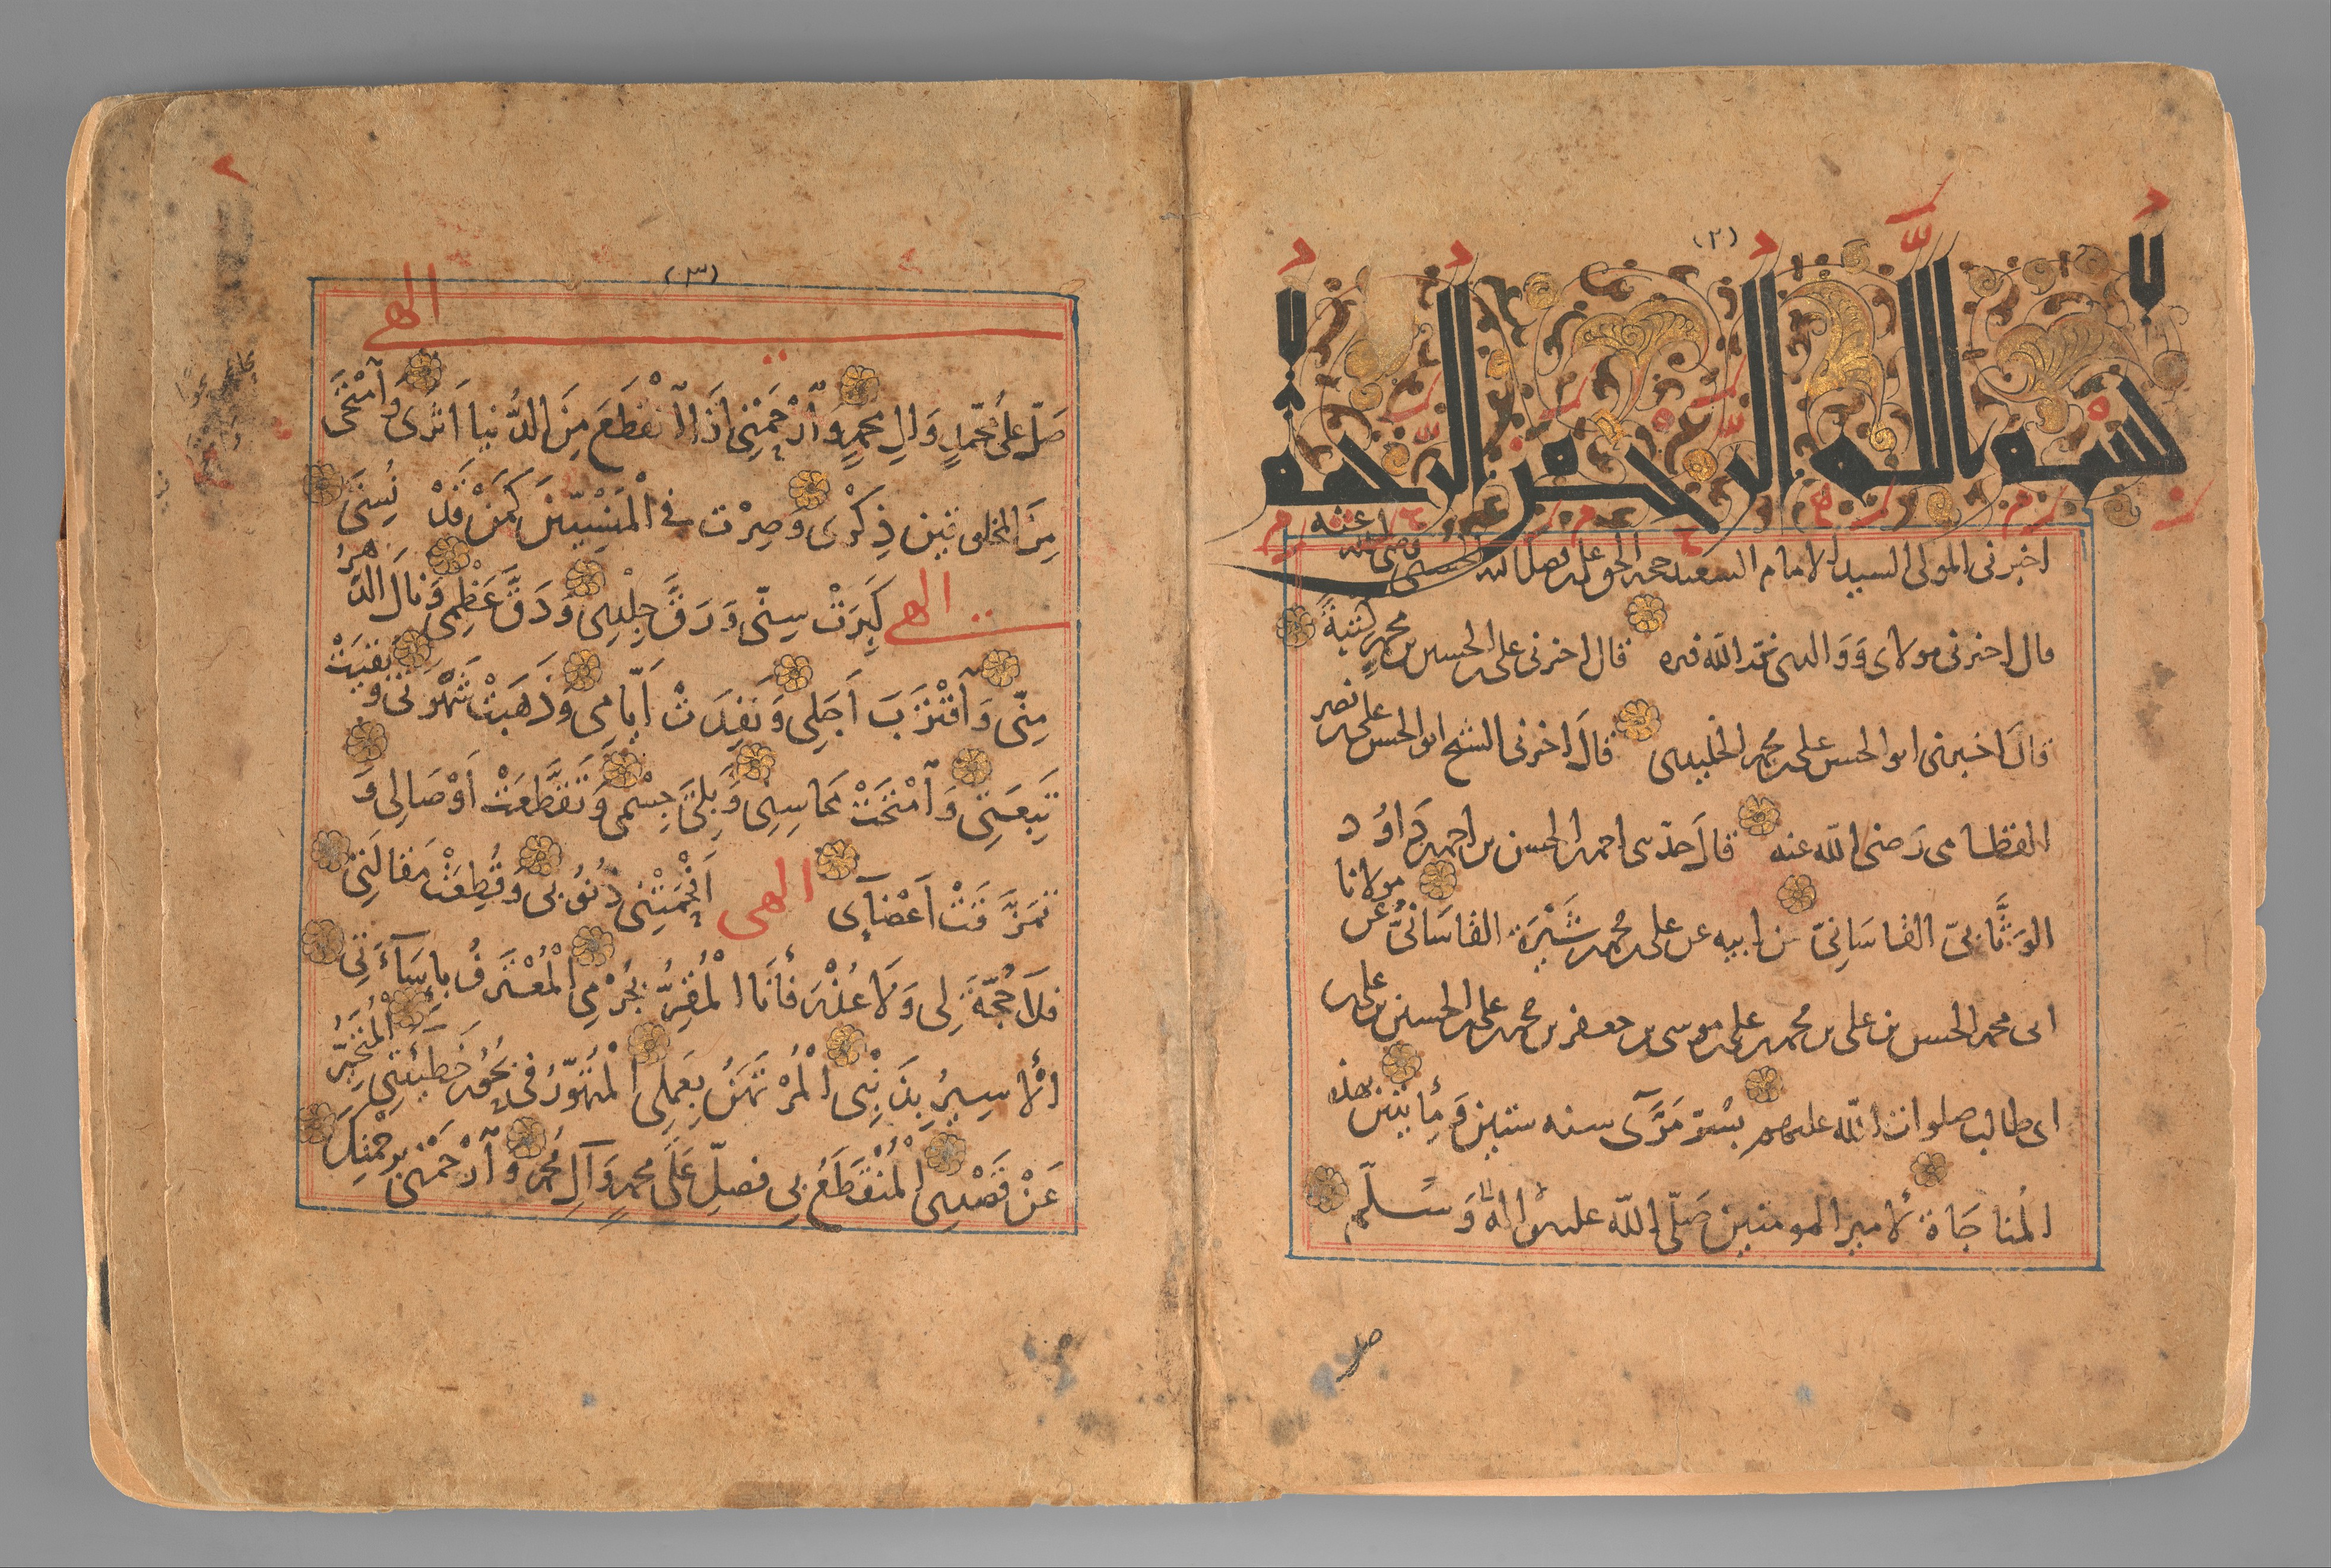 (٢)
بسم الله الرحمن الرحيم
اخبرنى المولى السيد الامام السعيد الحسنى رضى الله عنه
قال اخبرنى مولاى ووالدى قدس الله قال اخبرنى على بن الحسين بن محمد
قالَ اخبرنى ابو الحسن على بن محمد الخليدى قالَ اخبرنى الشيخ ابو الحسن على بن نصر
القطامى رَضى الله عنه قالَ حدّثنى احمد بن الحسن بن احمد بن دَاوُد
الوَثَّابىّ القاسَانِىّ عن ابيه عن على بن محمد بن شَيْرَة القاسَانىّ عَن مولانا
ابى محمد الحسن بن على بن محمد بن على بن موسى بن جعفر بن محمد بن على بن الحسين بن على بن
ابى طالب صلوات الله عليهم بسُرّ مَرَّآى سنه ستين وَمِأئتين بهذه
المُناجَاة لأمير المومنين صَلّى الله عليه وآله وَسَلّم
(٣)
الهى
صَلّ عَلىٰ مُحَمّدٍ وَالِ محمدٍ وَٱرْحَمْنِى اِذَا ٱنْقَطَعَ مِنَ الدُّنيا اَثَرِى وَٱمْتَحَىٰ
مِنَ المخلوقين ذِكْرِى وَصِرْت فى الْمَنْسِيّينَ كَمَنْ قَدْ نُسِىَ
الهى كَبِرَتْ سِنّى وَرَقَّ جِلْدِى وَدَقَّ عَظْمِى وَنَالَ الدَّهرُ
مِنّى وَٱقْتَرَبَ اَجَلِى وَنَفِدَتْ اَيّامِى وَذَهَبَتْ شَهْوَتِى وَبَقِيَتْ
تَبِعَتِى وَٱمْتَحَتْ مَحَاسِنِى وَبَلِىَ جِسْمِى وَتَقَطَّعَتْ اَوْصَالِى وَ
تَمَزَّقَتْ اَعْضَآى الهى اَفْحَمَتْنِى ذُنُوبى وَقُطِعَتْ مَقالَتِى
فلَا حُجَّةَ لِى وَلَا عُذْرَ فَأَنَا الْمُقِرُّ بجُرْمِى الْمُعْتَرِفُ بِاِسَآءَتِى
الْأَسِيرُ بِذَنْبِى الْمُرْتَهَنُ بِعَمَلِى الْمُتَهَوِّرُ فى بُحُورِ خَطِيئَتِى الْمُتَحَيِّرُ
عَنْ قَصْدِى الْمُنْقَطَعُ بِى فصَلِّ عَلَى محمدٍ وَآلِ مُحمدٍ وَٱرْحَمْنِى بِرَحْمَتِكَ